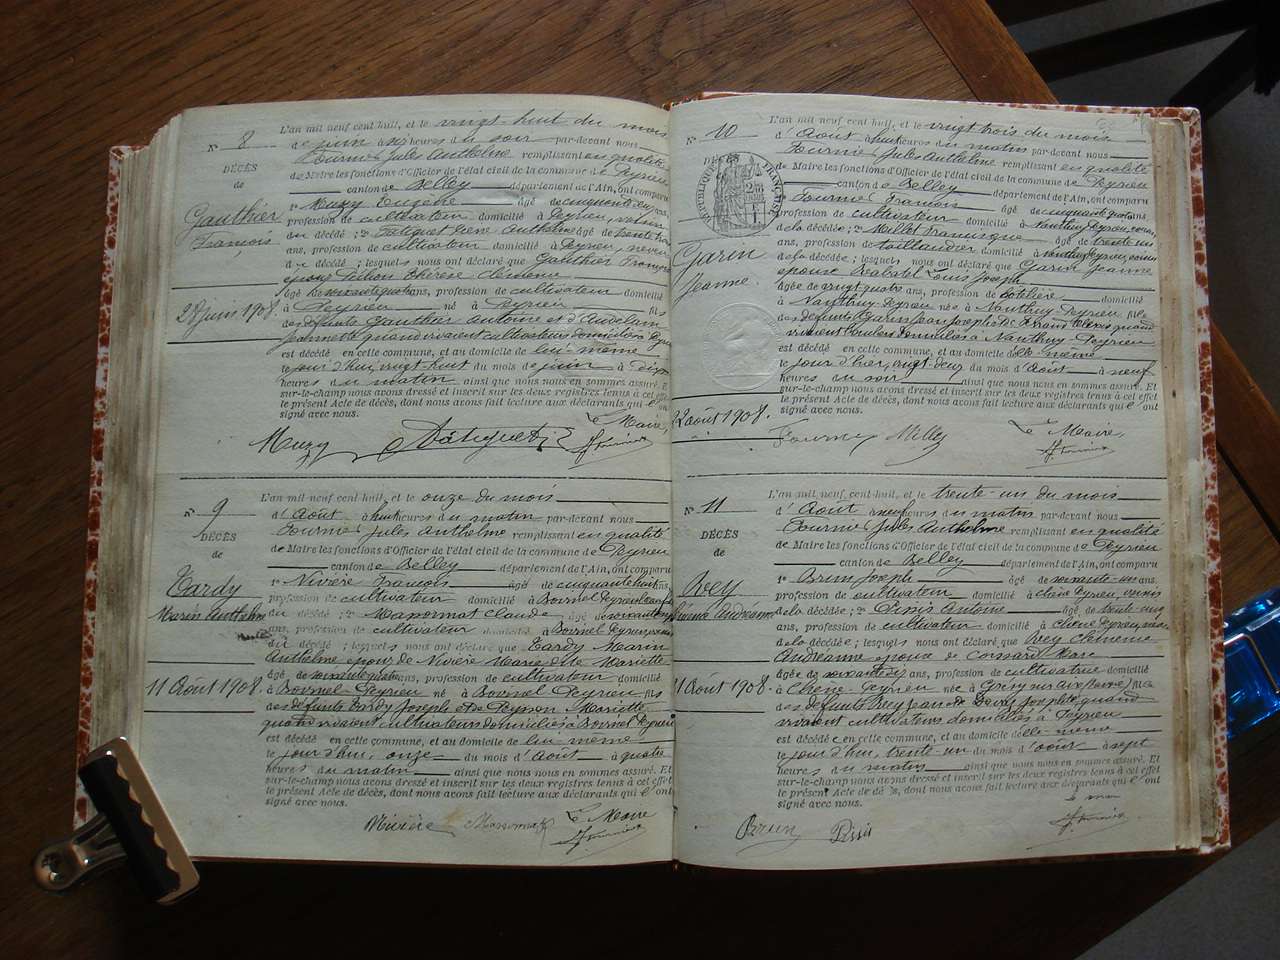 N° 8
DÉCÈS
de
Gauthier
François
28 juin 1908.
L'an mil neuf cent huit, et le vingt huit du mois
de juin à heures du soir par-devant nous
Fournier Jules Anthelme remplissant en qualité
de Maire les fonctions d'Officier de l'état civil de la commune de Peyrieu
canton de Belley département de l'Ain, ont comparu
1° Muzy Eugène âgé de cinquante ans,
profession de cultivateur domicilié à Peyrieu, voisin
du décédé ; 2° Anthelme âgé de trente
ans, profession de cultivateur domicilié à Peyrieu, neveu
du décédé ; lesquels nous ont déclaré que Gauthier François
époux Thérèse Clémence
âgé de soixante quatre ans, profession de cultivateur domicilié
à Peyrieu né à Peyrieu
des défunts Gauthier Antoine et d'
Jeannette quand vivaient cultivateurs domiciliés à
est décédé en cette commune, et au domicile de lui-même
le jour d'hui, vingt huit du mois de juin à dix
heures du matin ainsi que nous nous en sommes assuré. Et
sur-le-champ nous avons dressé et inscrit sur les deux registres tenus à cet effet
le présent Acte de décès, dont nous avons fait lecture aux déclarants qui l'ont
signé avec nous.
Le Maire,
Muzy
Fournier
N° 9
DÉCÈS
de
Tardy
Marin Anthelme
11 Août 1908.
L'an mil neuf cent huit, et le onze du mois
d'Août à huit heures du matin par-devant nous
Fournier Jules Anthelme remplissant en qualité
de Maire les fonctions d'Officier de l'état civil de la commune de Peyrieu
canton de Belley département de l'Ain, ont comparu
1° Nivière François âgé de cinquante huit ans,
profession de cultivateur domicilié à
du décédé ; 2° Claude âgé de soixante
ans, profession de cultivateur domicilié à
du décédé ; lesquels nous ont déclaré que Tardy Marin
Anthelme époux de Nivière Marie dite Mariette
âgé de ans, profession de cultivateur domicilié
à Peyrieu né à Peyrieu, fils
des défunts Tardy Joseph et de Peysson Mariette
quand vivaient cultivateurs domiciliés à Peyrieu
est décédé en cette commune, et au domicile de lui même
le jour d'hui, onze du mois d'Août à quatre
heures du matin ainsi que nous nous en sommes assuré. Et
sur-le-champ nous avons dressé et inscrit sur les deux registres tenus à cet effet
le présent Acte de décès, dont nous avons fait lecture aux déclarants qui l'ont
signé avec nous.
Le Maire
Nivière
Fournier
N° 10
DÉCÈS
RÉPUBLIQUE FRANÇAISE
Garin
Jeanne.
22 août 1908.
L'an mil neuf cent huit, et le vingt trois du mois
d'Août à huit heures du matin par-devant nous
Fournier Jules Anthelme remplissant en qualité
de Maire les fonctions d'Officier de l'état civil de la commune de Peyrieu
canton de Belley département de l'Ain, ont comparu
1° Fournier François âgé de cinquante quatre ans,
profession de cultivateur domicilié à Nanthuy Peyrieu, voisin
de la décédée ; 2° Millet Francisque âgé de trente un
ans, profession de taillandier domicilié à Nanthuy Peyrieu, voisin
de la décédée ; lesquels nous ont déclaré que Garin Jeanne
épouse Louis Joseph
âgée de vingt quatre ans, profession de domicilié
à Nanthuy Peyrieu née à Nanthuy Peyrieu fille
des défunts Garin Jean Joseph et de quand
vivaient domiciliés à Nanthuy Peyrieu
est décédée en cette commune, et au domicile d'elle même
le jour d'hier, vingt deux du mois d'Août à neuf
heures du soir ainsi que nous nous en sommes assuré. Et
sur-le-champ nous avons dressé et inscrit sur les deux registres tenus à cet effet
le présent Acte de décès, dont nous avons fait lecture aux déclarants qui l'ont
signé avec nous.
Le Maire,
Fournier
N° 11
DÉCÈS
de
Rey
Andréanne
31 Août 1908.
L'an mil neuf cent huit, et le trente-un du mois
d'Août à neuf heures du matin par-devant nous
Fournier Jules Anthelme remplissant en qualité
de Maire les fonctions d'Officier de l'état civil de la commune de Peyrieu
canton de Belley département de l'Ain, ont comparu
1° Brun Joseph âgé de soixante-un ans,
profession de cultivateur domicilié à Peyrieu, voisin
de la décédée ; 2° Antoine âgé de trente cinq
ans, profession de cultivateur domicilié à Peyrieu,
de la décédée ; lesquels nous ont déclaré que Rey
Andréanne épouse de Marc
âgée de soixante dix ans, profession de cultivatrice domicilié
à Peyrieu née à fille
des défunts Rey Jean et de Josephte quand
vivaient cultivateurs domiciliés à Peyrieu
est décédée en cette commune, et au domicile d'elle même
le jour d'hui, trente-un du mois d'août à sept
heures du matin ainsi que nous nous en sommes assuré. Et
sur-le-champ nous avons dressé et inscrit sur les deux registres tenus à cet effet
le présent Acte de décès, dont nous avons fait lecture aux déclarants qui l'ont
signé avec nous.
Brun
Fournier